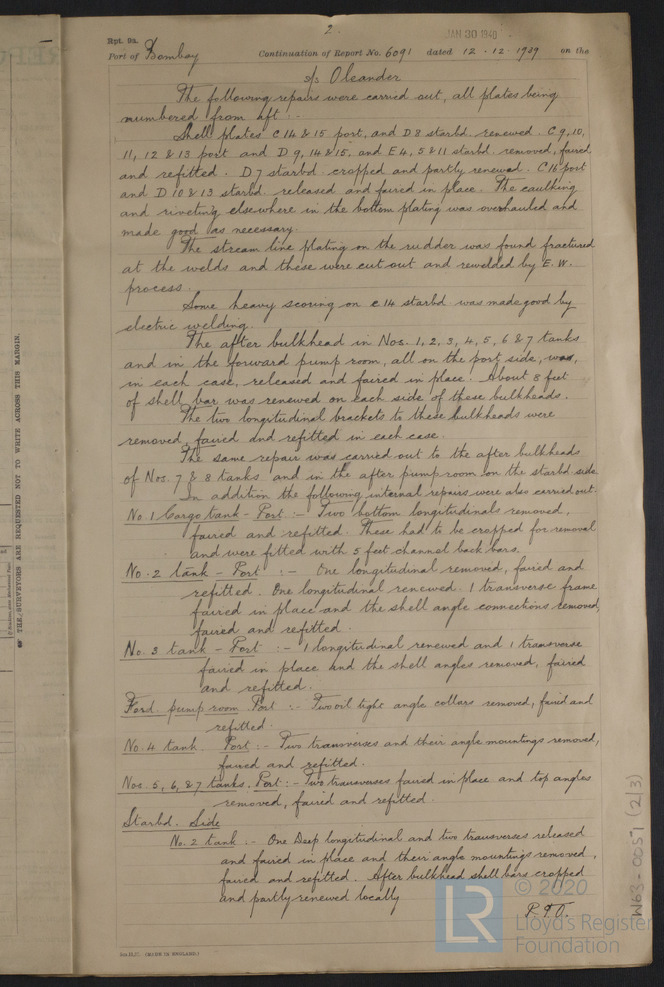 2.
JAN 30 1940
Rpt. 9a.
Port of Bombay Continuation of Report No. 6091 dated 12 · 12 · 1939 on the
s/s Oleander
The following repairs were carried out, all plates being
numbered from aft :-
Shell plates C 14 & 15 port, and D 8 starbd. renewed. C 9, 10,
11, 12 & 13 port and D 9, 14 & 15, and E 4, 5 & 11 starbd. removed, faired
and refitted. D 7 starbd cropped and partly renewed. C 16 port
and D 10 & 13 starbd. released and faired in place. The caulking
and riveting elsewhere in the bottom plating was overhauled and
made good as necessary.
The stream line plating on the rudder was found fractured
at the welds and these were cut out and rewelded by E.W.
process.
Some heavy scoring on C 14 starbd. was made good by
electric welding.
The after bulkhead in Nos. 1, 2, 3, 4, 5, 6 & 7 tanks
and in the forward pump room, all on the port side, was,
in each case, released and faired in place. About 8 feet
of shell bar was renewed on each side of these bulkheads.
The two longitudinal brackets to these bulkheads were
removed, faired and refitted in each case.
The same repair was carried out to the after bulkheads
of Nos. 7 & 8 tanks and in the after pump room on the starbd side.
In addition the following internal repairs were also carried out.
No. 1 Cargo tank - Port :- Two bottom longitudinals removed,
faired and refitted. These had to be cropped for removal
and were fitted with 5 feet channel back bars.
No. 2 tank - Port :- One longitudinal removed, faired and
refitted. One longitudinal renewed. 1 transverse frame
faired in place and the shell angle connections removed,
faired and refitted.
No. 3 tank - Port :- 1 longitudinal renewed and 1 transverse
faired in place and the shell angles removed, faired
and refitted.
Ford. pump room Port :- Two oil tight angle collars removed, faired and
refitted.
No. 4 tank Port :- Two transverses and their angle mountings removed,
faired and refitted.
Nos. 5, 6, & 7 tanks. Port :- Two transverses faired in place and top angles
removed, faired and refitted.
Starbd. Side
No. 2 tank :- One Deep longitudinal and two transverses released
and faired in place and their angle mountings removed,
faired and refitted. After bulkhead shell bars cropped
and partly renewed locally
P.T.O.
(MADE IN ENGLAND.)
THE SURVEYORS ARE REQUESTED NOT TO WRITE ACROSS THIS MARGIN.
W63-0057 (2/3)
LR
© 2020
Lloyd's Register
Foundation